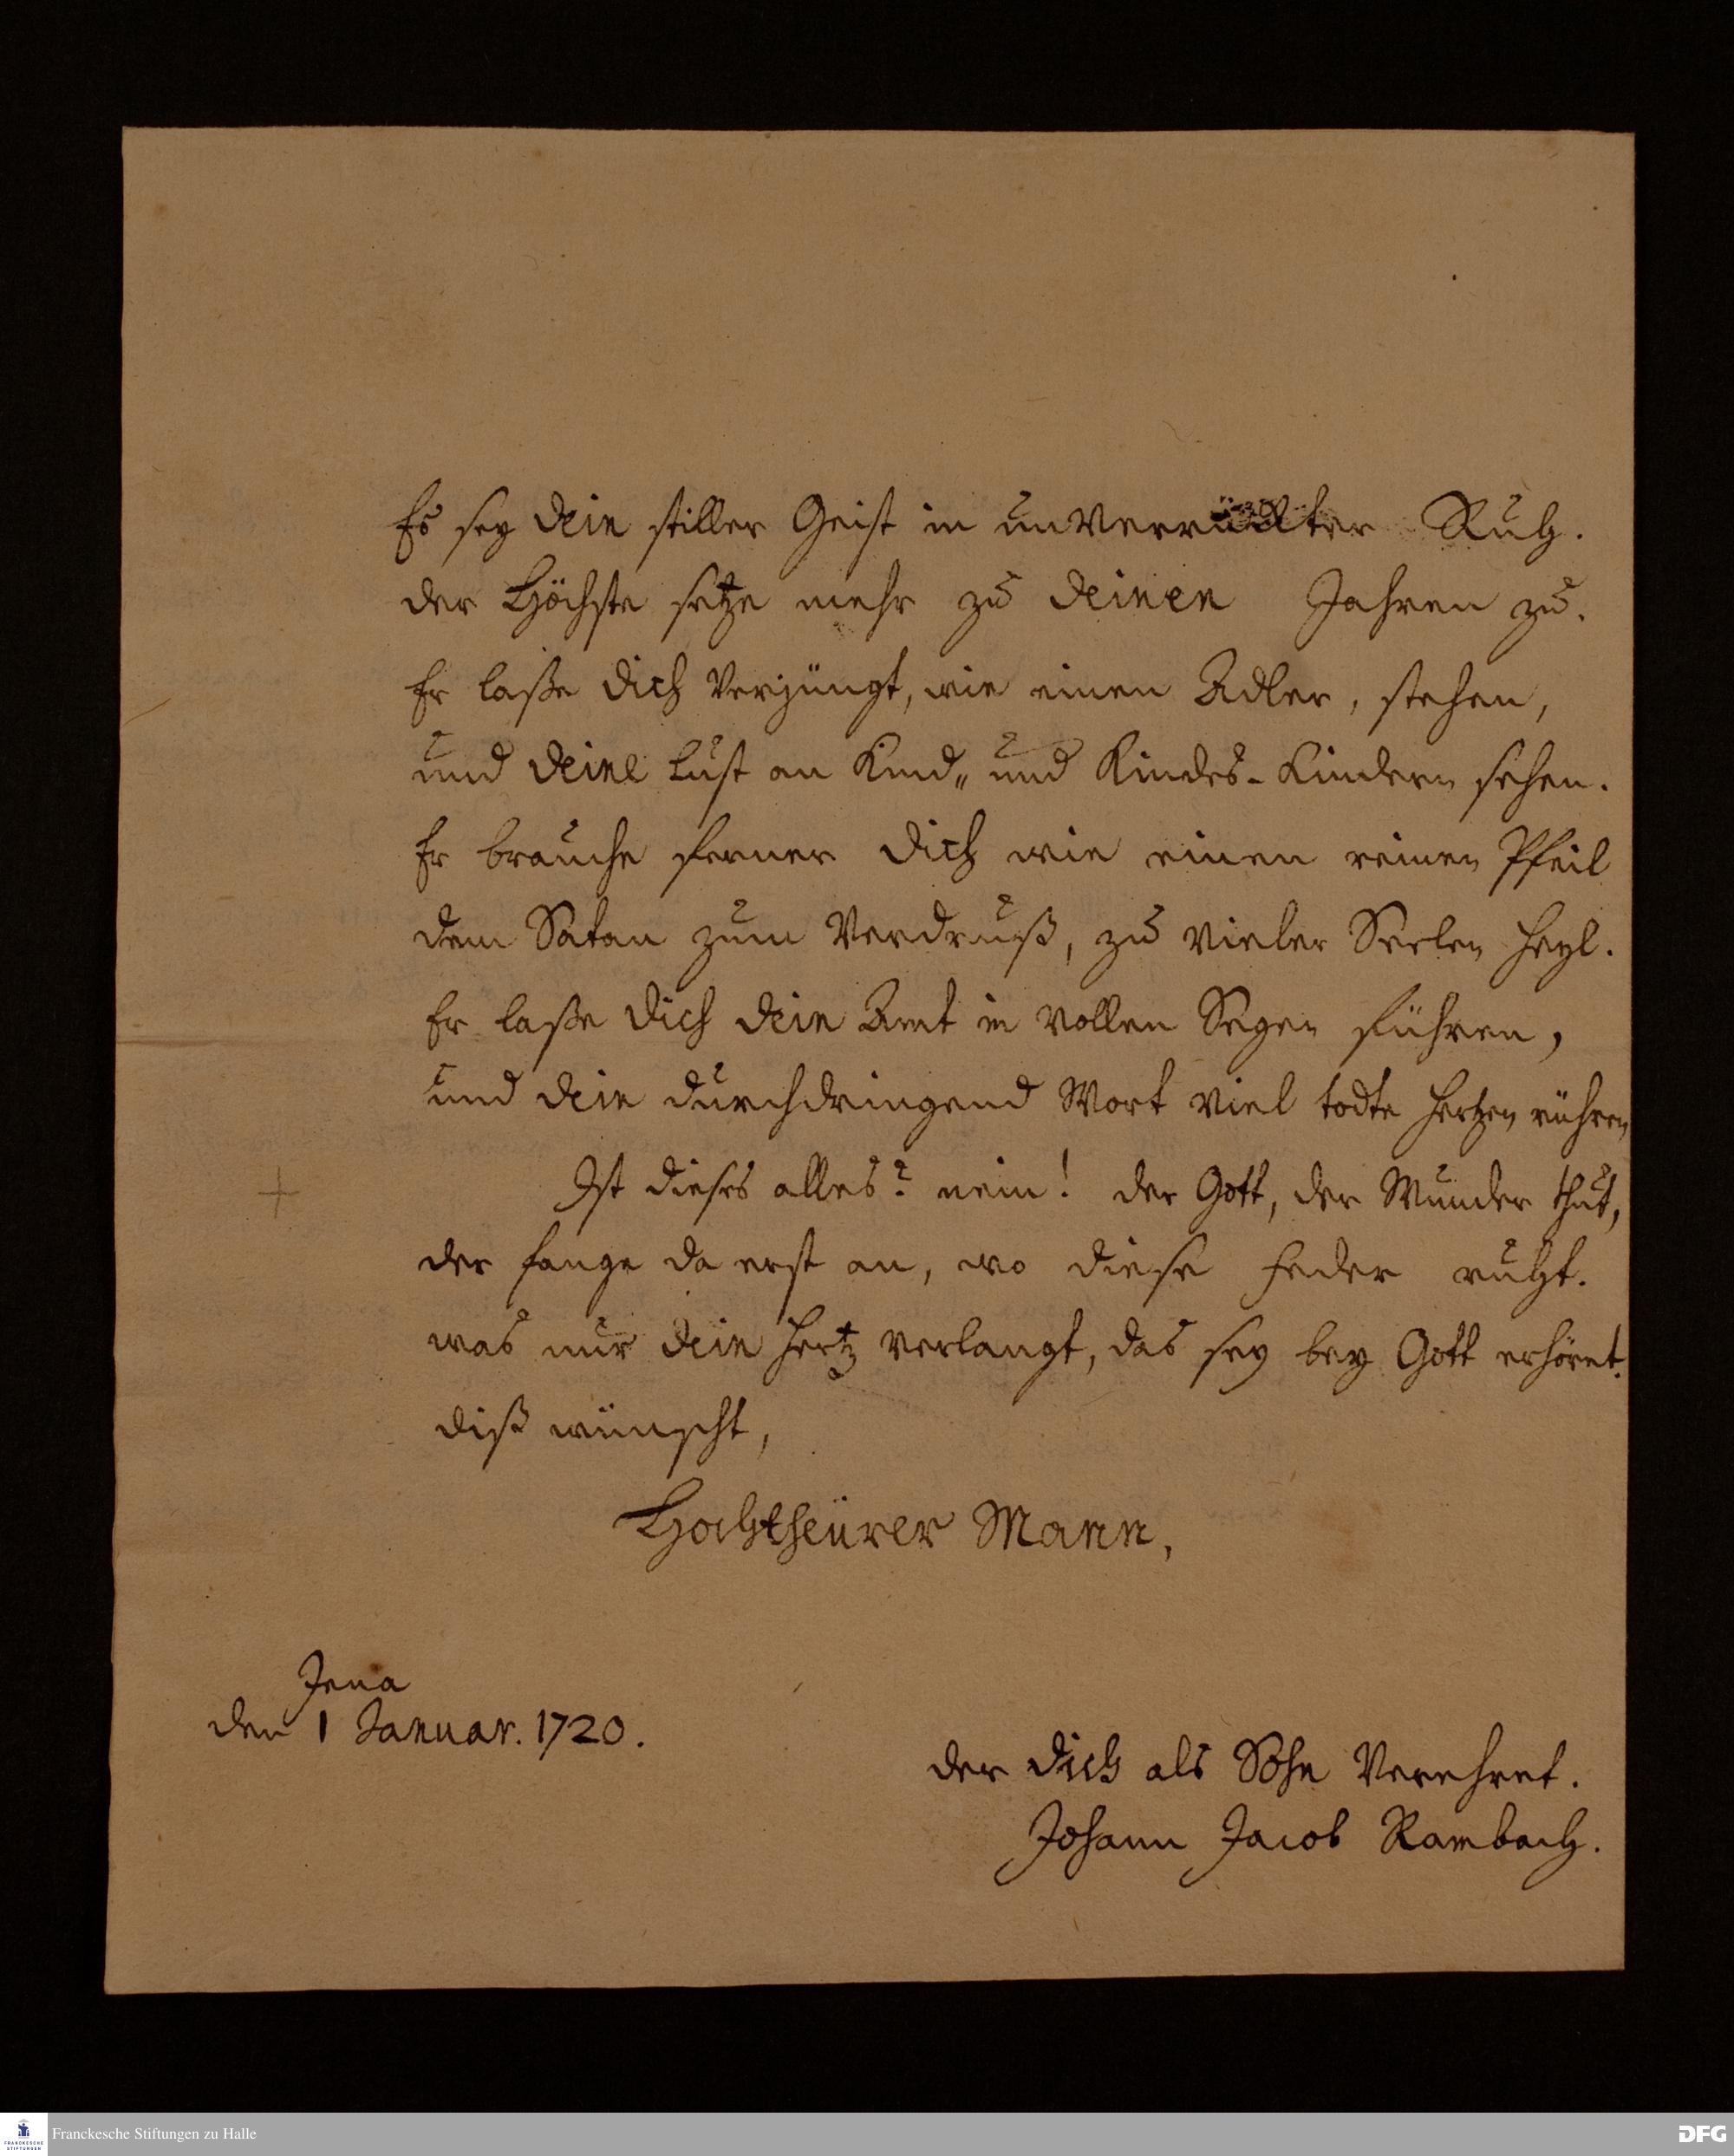 Es sey Dein stiller Geist in unverrückter Ruh.
der Höchste setze mehr zu Deinen Jahren zu.
Er laße Dich verjüngt, wie einen Adler, stehen,
und Deine Lust an Kind„ und Kindes-Kindern sehen.
Er brauche ferner Dich wie einen reinen Pfeil
dem Satan zum Verdruß, zu vieler Seelen Heyl.
Er laße Dich Dein Amt in vollen Segen führen,
und Dein durchdringend Wort viel todte Hertzen rühren
Ist dieses alles? nein! der Gott, der Wunder thut,
der fange da erst an, wo diese Feder ruht.
was nur Dein Hertz verlangt, das sey bey Gott erhöret.
diß wünscht,
Hochtheürer Mann,
Jena
den 1 Januar. 1720.
der Dich als Sohn Verehret.
Johann Jacob Rambach.
FRANCKESCHE STIFTUNGEN
Franckesche Stiftungen zu Halle
DFG